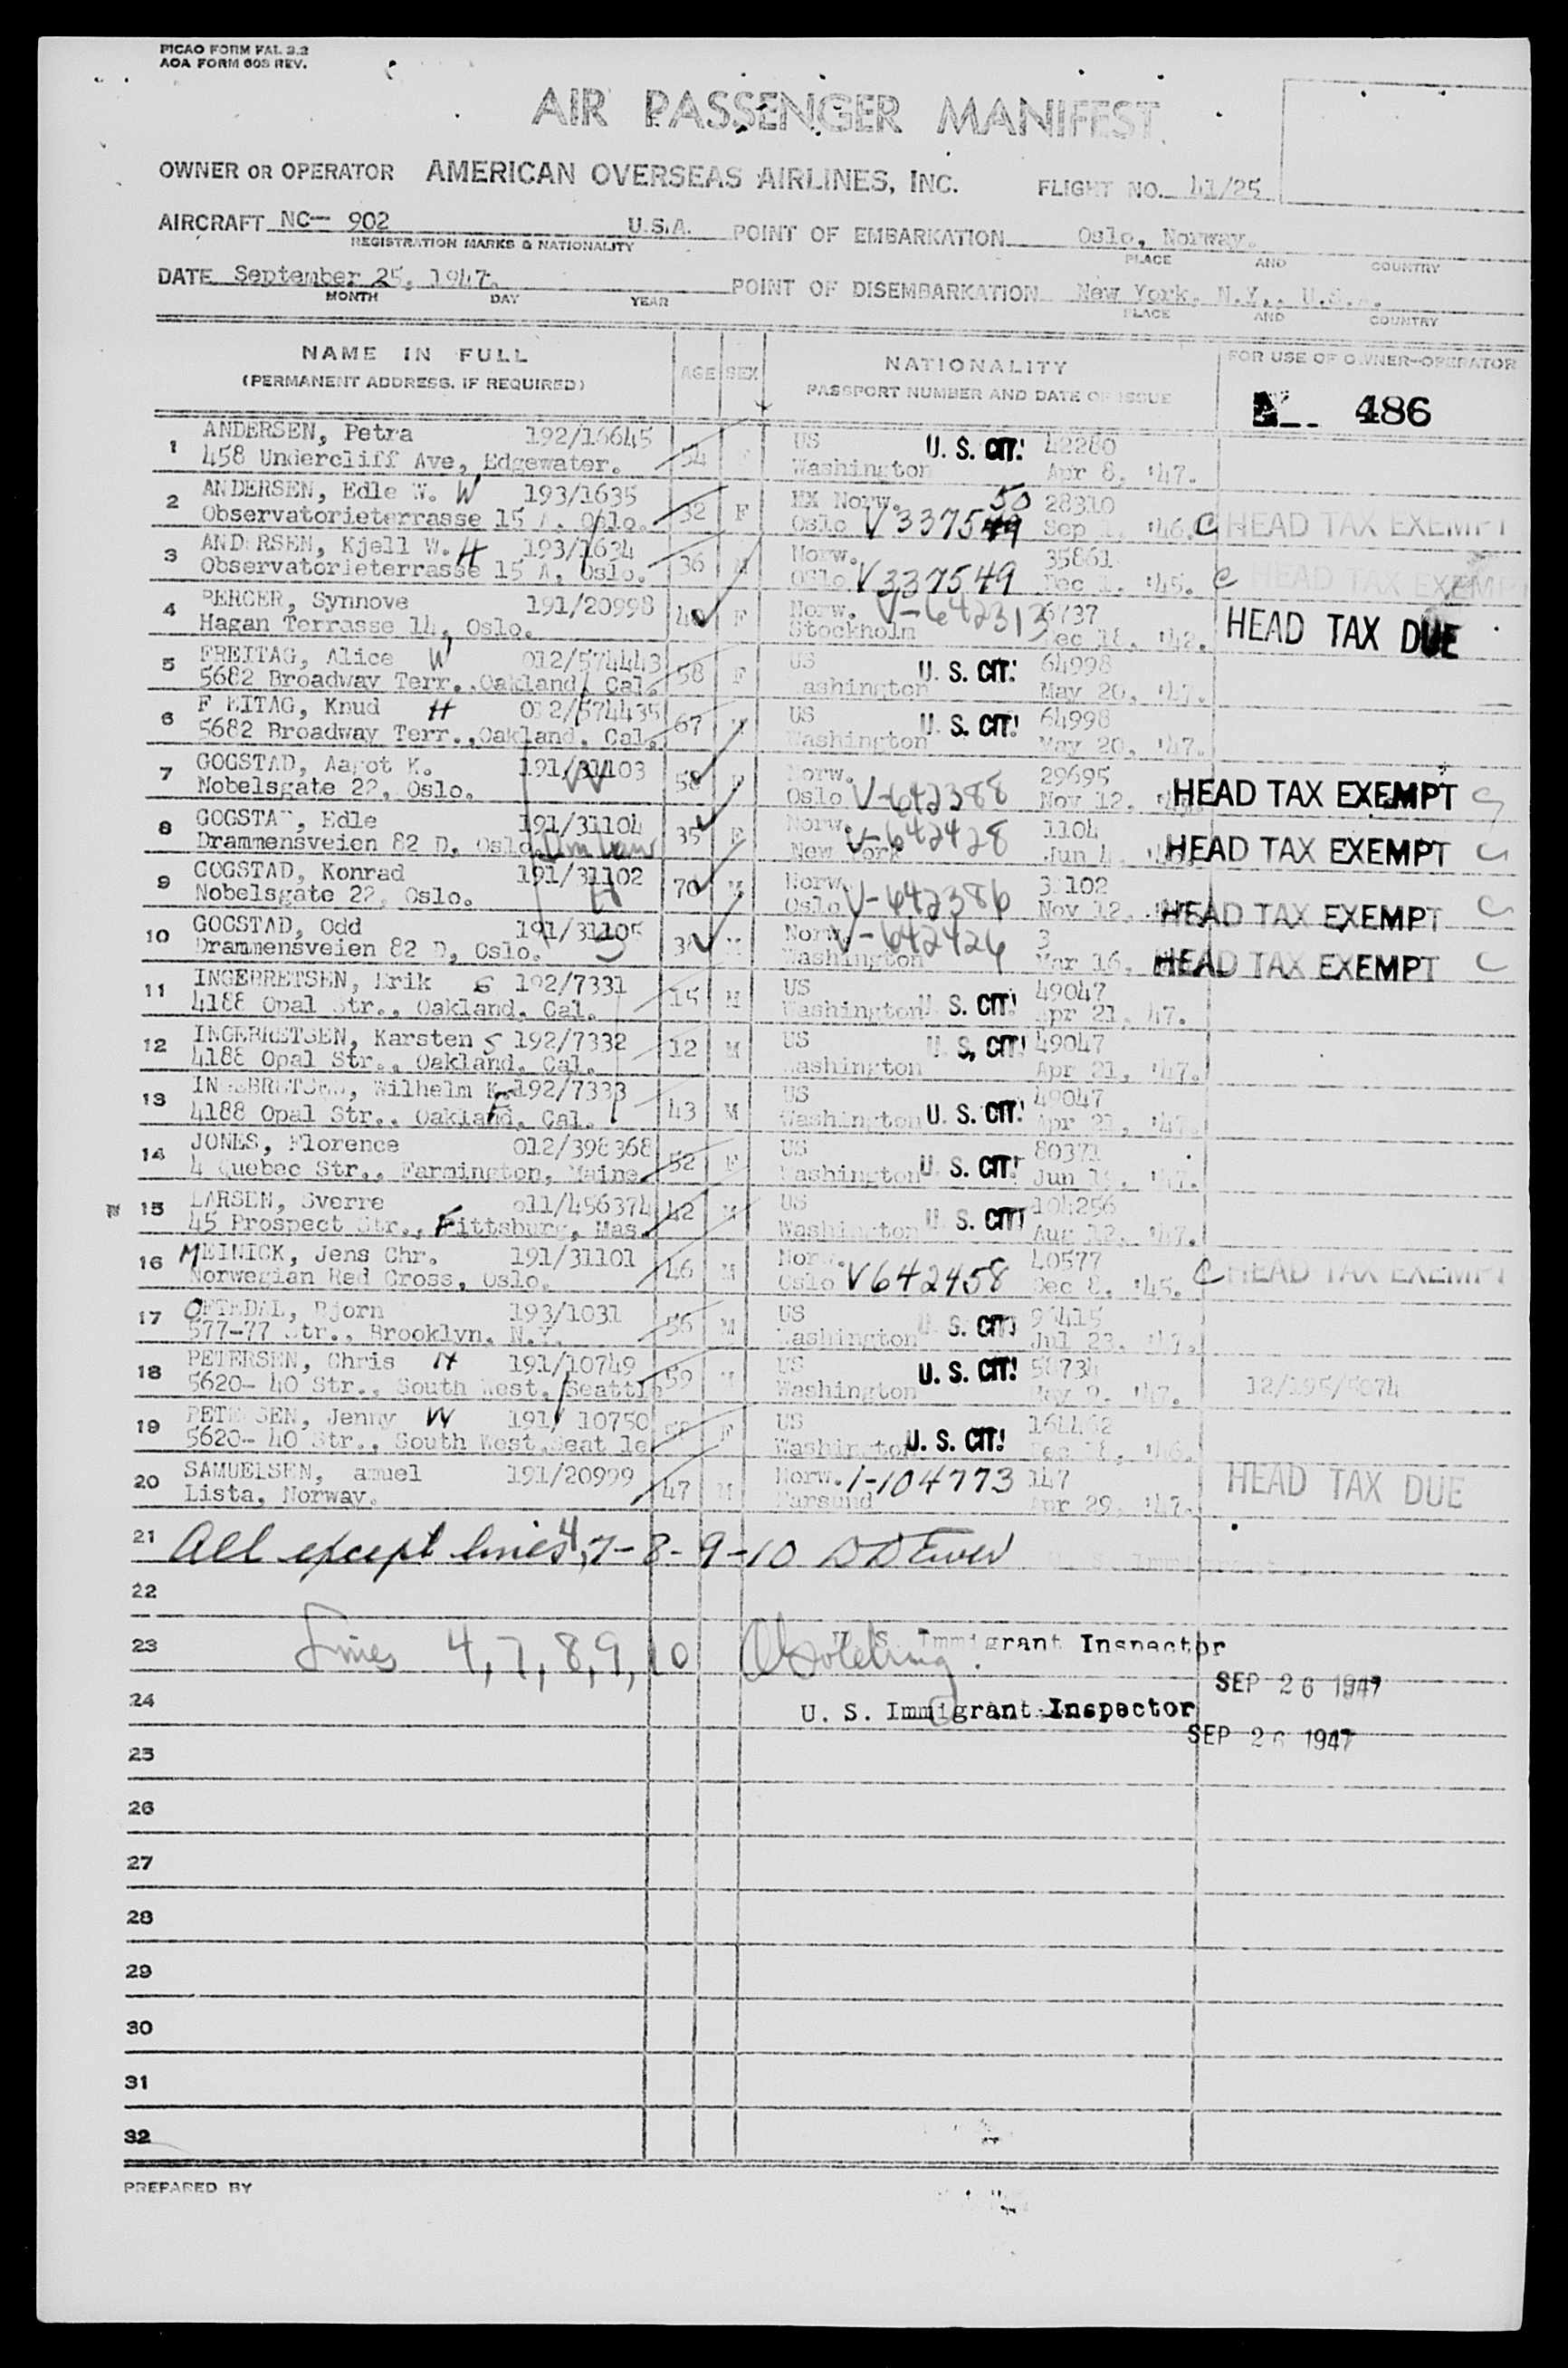 PICAO FORM FAL 2.2
AOA FORM 608 REV.
AIR PASSENGER MANIFEST
OWNER OR OPERATOR AMERICAN OVERSEAS AIRLINES, INC. FLIGHT NO. 41/25
AIRCRAFT NC— 902 U.S.A. POINT OF EMBARKATION Oslo, Norway.
REGISTRATION MARKS & NATIONALITY PLACE AND COUNTRY
DATE September 25, 1947. POINT OF DISEMBARKATION New York, N.Y., U.S.A.
MONTH DAY YEAR PLACE AND COUNTRY
NAME IN FULL AGE SEX NATIONALITY FOR USE OF OWNER-OPERATOR
(PERMANENT ADDRESS, IF REQUIRED) PASSPORT NUMBER AND DATE OF ISSUE
486
1 ANDERSEN, Petra 192/16645 54 F US U. S. CIT! 42280
458 Undercliff Ave, Edgewater. Washington Apr 8, '47.
2 ANDERSEN, Edle W. W 193/1635 32 F EX Norw. 50 28310
Observatorieterrasse 15 A, Oslo. Oslo V 337549 Sep 1, '46. C HEAD TAX EXEMPT
3 ANDERSEN, Kjell W. H 193/1634 36 M Norw. 35861
Observatorieterrasse 15 A, Oslo. Oslo V 337549 Dec 1, '45. C HEAD TAX EXEMPT
4 BERGER, Synnove 191/20998 40 F Norw. V-642313 6/37
Hagan Terrasse 14, Oslo. Stockholm Dec 18, '42. HEAD TAX DUE
5 FREITAG, Alice W 012/574443 58 F US U. S. CIT! 64998
5682 Broadway Terr., Oakland, Cal. Washington May 20, '47.
6 FREITAG, Knud H 012/574435 67 M US U. S. CIT! 64998
5682 Broadway Terr., Oakland, Cal. Washington May 20, '47.
7 GOGSTAD, Aagot K. 191/31103 W 58 F Norw. 29695
Nobelsgate 22, Oslo. Oslo V-642388 Nov 12, HEAD TAX EXEMPT C
8 GOGSTAD, Edle 191/31104 35 F Norw. V-642428 1104
Drammensveien 82 D, Oslo. New York Jun 4, HEAD TAX EXEMPT C
9 GOGSTAD, Konrad 191/31102 H 70 M Norw. 31102
Nobelsgate 22, Oslo. Oslo V-642386 Nov 12, HEAD TAX EXEMPT C
10 GOGSTAD, Odd 191/31105 S M Norw. V-642426 3
Drammensveien 82 D, Oslo. Washington Mar 16, HEAD TAX EXEMPT C
11 INGEBRETSEN, Erik S 192/7331 15 M US U. S. CIT! 49047
4188 Opal Str., Oakland, Cal. Washington Apr 21, 47.
12 INGEBRETSEN, Karsten S 192/7332 12 M US U. S. CIT! 49047
4188 Opal Str., Oakland, Cal. Washington Apr 21, '47.
13 INGEBRETSEN, Wilhelm K. F 192/7333 43 M US U. S. CIT! 49047
4188 Opal Str., Oakland, Cal. Washington Apr 21, '47.
14 JONES, Florence 012/398368 52 F US U. S. CIT! 80371
4 Quebec Str., Farmington, Maine. Washington Jun '47.
15 LARSEN, Sverre 011/456374 42 M US U. S. CIT! 104256
45 Prospect Str., Fittsburg, Mas. Washington Aug 12, '47.
16 MEINICK, Jens Chr. 191/31101 46 M Norw. 40577
Norwegian Red Cross, Oslo. Oslo V642458 Dec 8, '45. C HEAD TAX EXEMPT
17 OFTEDAL, Bjorn 193/1031 56 M US U. S. CIT!
577-77 Str., Brooklyn, N.Y. Washington Jul 23, '47.
18 PETERSEN, Chris H 191/10749 59 M US U. S. CIT!
5620- 40 Str., South West, Seattle Washington May 9, '47.
19 PETERSEN, Jenny W 191/ 10750 F US U. S. CIT!
5620- 40 Str., South West, Seattle Washington Dec 18, '46.
20 SAMUELSEN, Samuel 191/20999 47 M Norw. 1-104773 147
Lista, Norway. Farsund Apr 29, '47. HEAD TAX DUE
21 All except lines 4, 7-8-9-10
22
23 Lines 4, 7, 8, 9, 10 U. S. Immigrant Inspector
SEP 26 1947
24 U. S. Immigrant Inspector
SEP 26 1947
25
26
27
28
29
30
31
32
PREPARED BY